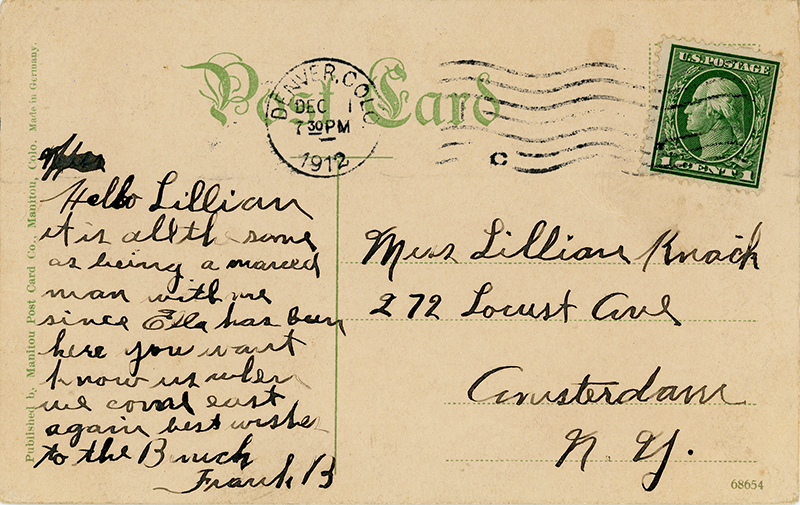 Post Card
DENVER, COLO.
DEC 1
7 30 PM
1912
C
U.S. POSTAGE
1 CENT 1
Published by Manitou Post Card Co., Manitou, Colo. Made in Germany.
Hello Lillian
it is all the same
as being a mareed
man with me
since Ella has been
here you wont
know us when
we come east
again best wishes
to the Bunch
Frank B
Miss Lillian Knack
272 Locust Ave
Amsterdam
N. Y.
68654